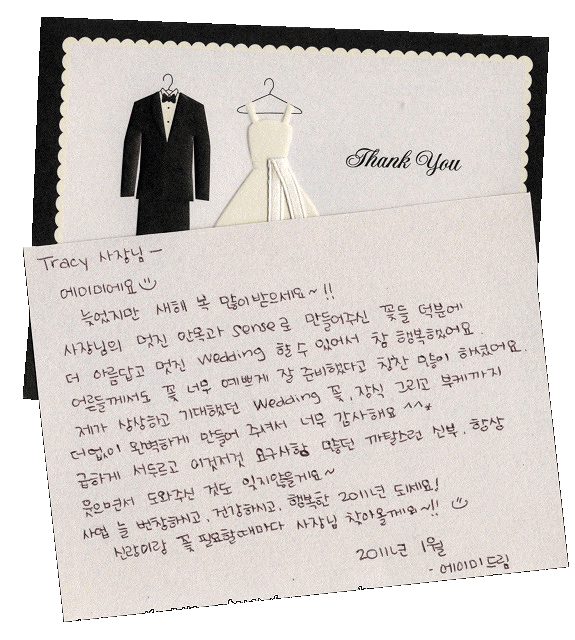 Thank You
Tracy 사장님 —
에이미예요 ☺
늦었지만 새해 복 많이 받으세요~!!
사장님의 멋진 안목과 sense로 만들어주신 꽃들 덕분에
더 아름답고 멋진 wedding 할 수 있어서 참 행복했어요.
어른들께서도 꽃 너무 예쁘게 잘 준비했다고 칭찬 많이 하셨어요.
제가 상상하고 기대했던 wedding 꽃, 장식 그리고 부케까지
더없이 완벽하게 만들어 주셔서 너무 감사해요 ^^*
급하게 서두르고 이것저것 요구사항 많던 까탈스런 신부, 항상
웃으면서 도와주신 것도 잊지않을게요~
사업 늘 번창하시고, 건강하시고, 행복한 2011년 되세요!
신랑이랑 꽃 필요할때마다 사장님 찾아올게요~!! ☺
2011년 1월
- 에이미 드림